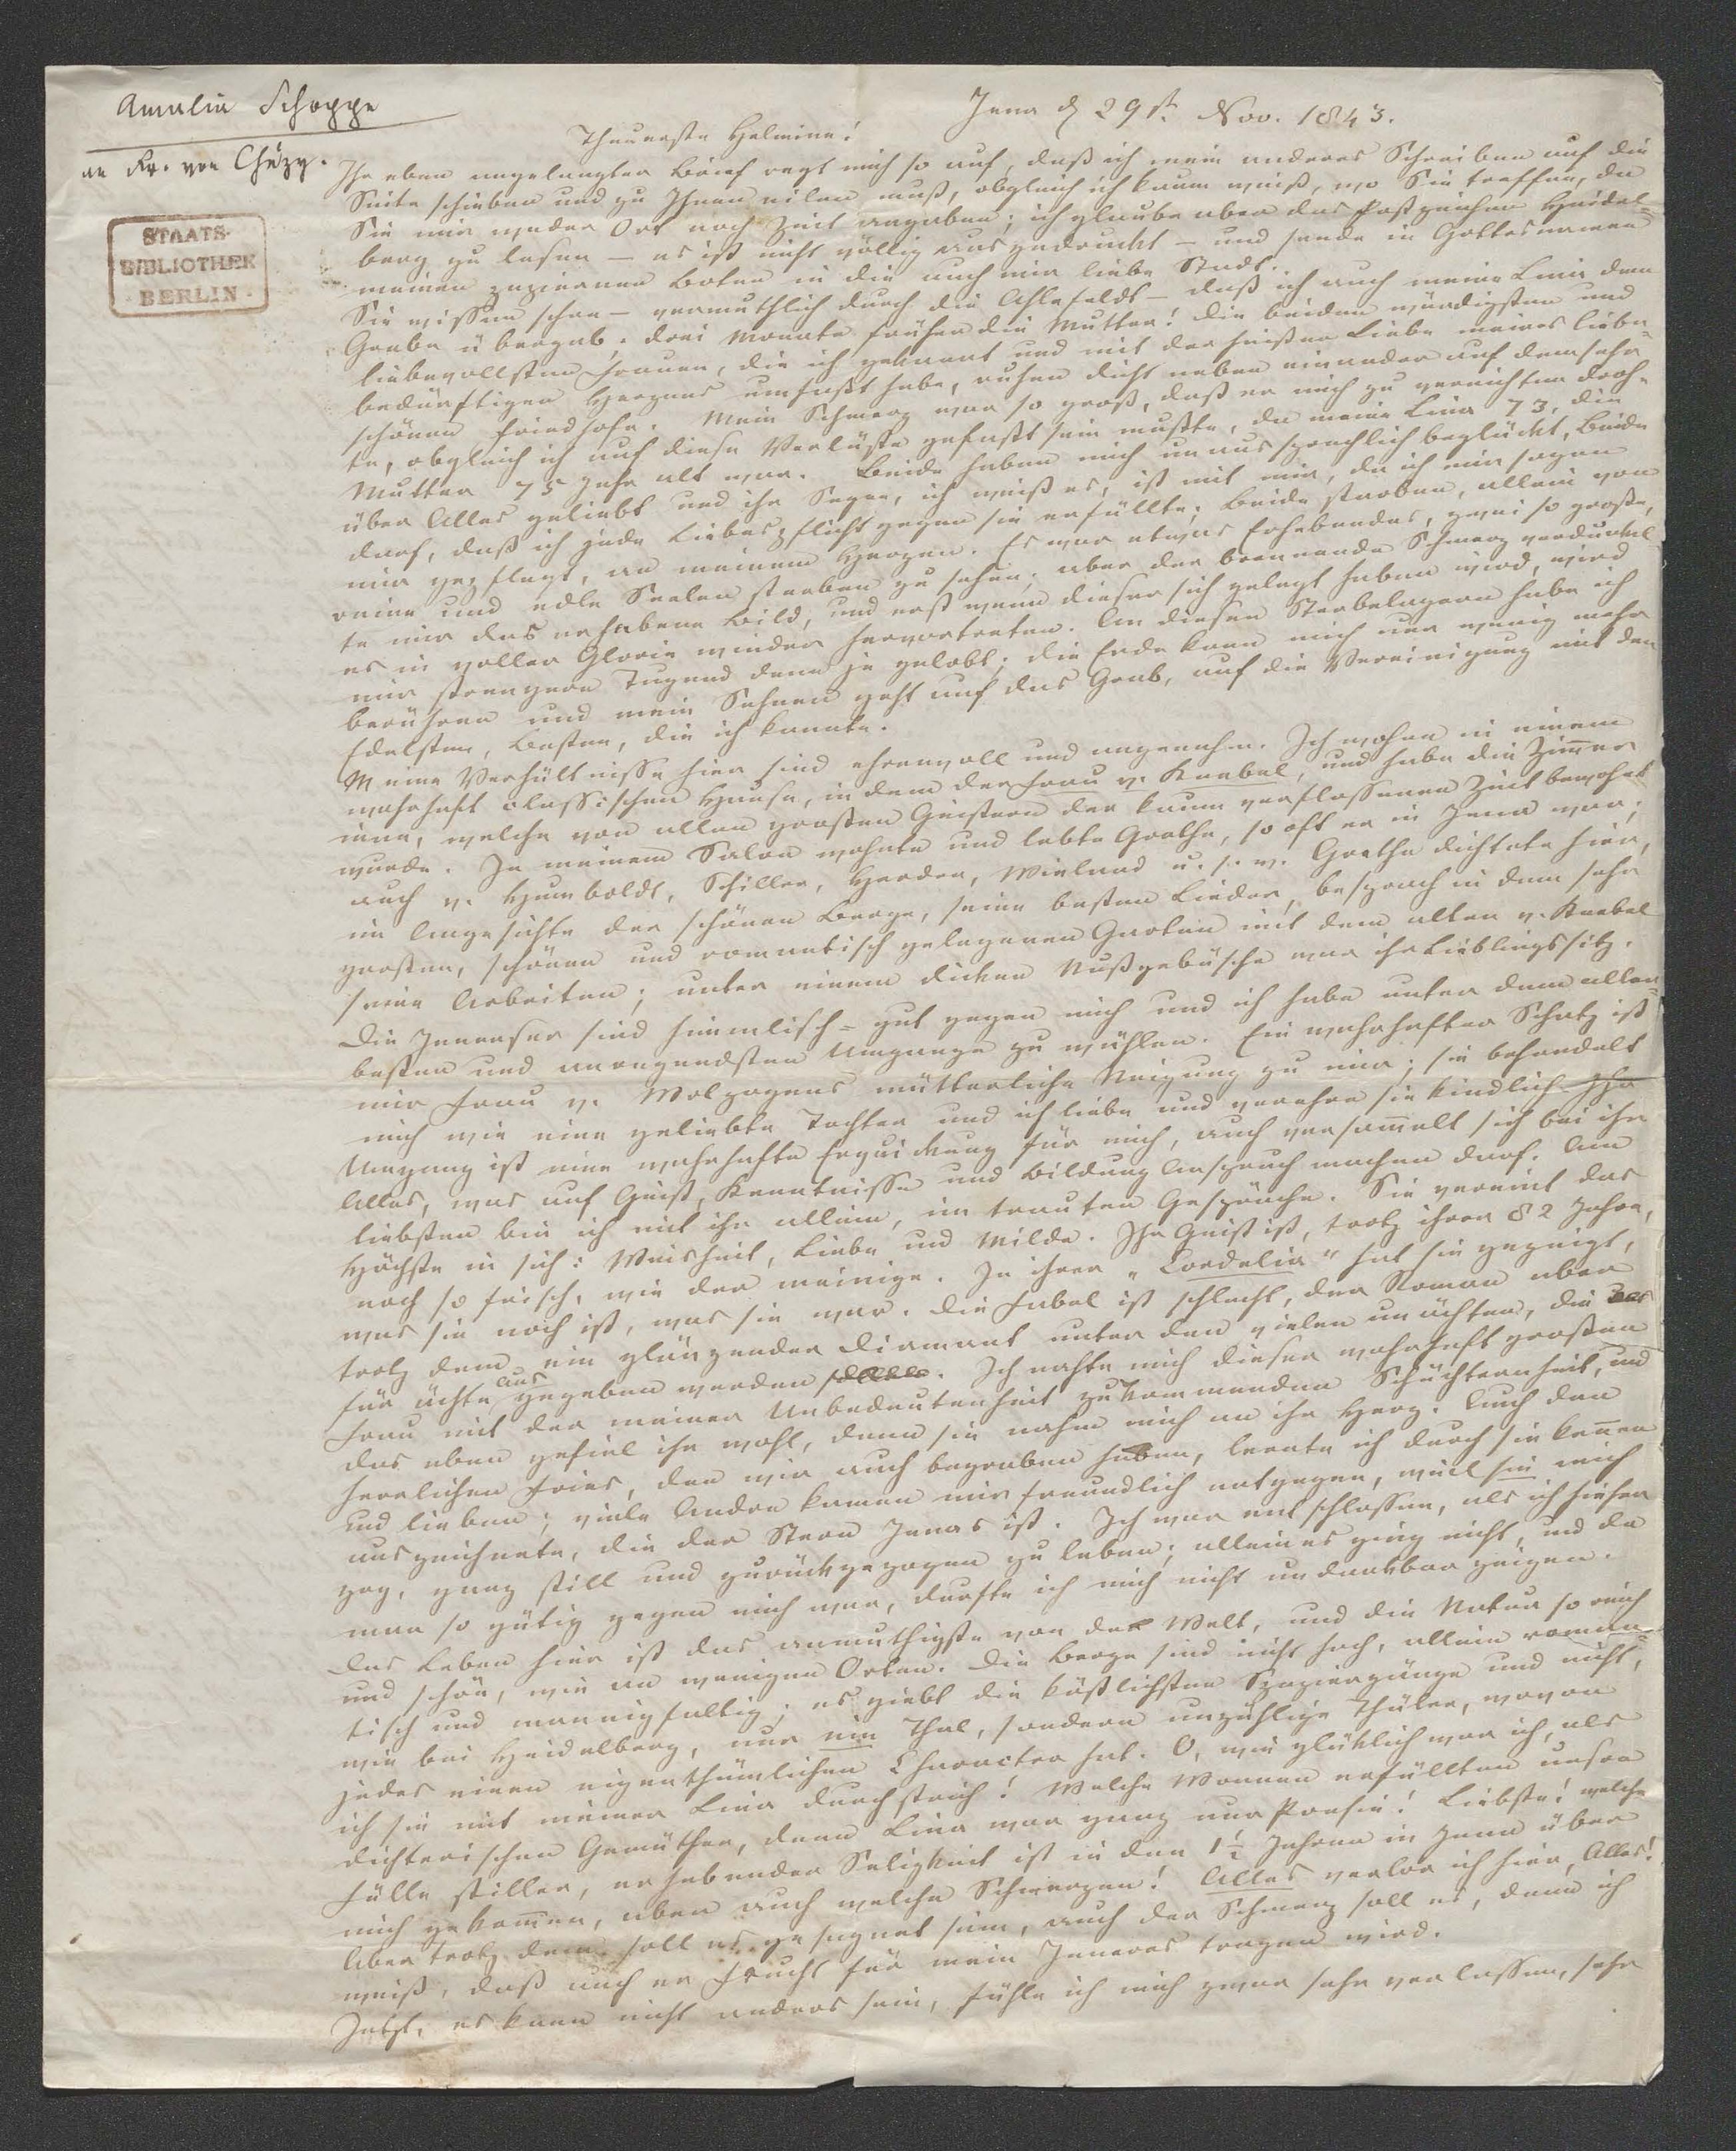 Amalia Schoppe
an Fr. von Chézy.
STAATS-
BIBLIOTHEK
BERLIN
Jena d 29st. Nov. 1843.
Theuerste Helmine!
Ihr eben angelangter Brief regt mich so auf, daß ich mein anderes Schreiben auf die
Seite schieben und zu Ihnen eilen muß, obgleich ich kaum weiß, wo Sie treffen, da
Sie mir weder Ort noch Zeit angaben; ich glaube aber das Postzeichen Heidel-
berg zu lesen – es ist nicht völlig ausgedruckt – und sende in Gottesnamen
meinen papiernen Boten in die auch mir liebe Stadt.
Sie wissen schon – vermuthlich durch die Ahlefeldt – daß ich auch meine Lina dem
Grabe übergab, drei Monate früher die Mutter! Die beiden würdigsten und
liebevollsten Frauen, die ich gekannt und mit der heißen Liebe meines liebe-
bedürftigen Herzens umfaßt habe, ruhen dicht neben einander auf dem sehr
schönen Friedhofe. Mein Schmerz war so groß, daß er mich zu vernichten droh-
te, obgleich ich auf diese Verlüste gefaßt sein mußte, da meine Lina 73, die
Mutter 75 Jahr alt war. Beide haben mich unaussprechlich beglückt, Beide
über Alles geliebt und ihr Segen, ich weiß es, ist mit mir, da ich mir sagen
darf, daß ich jede Liebespflicht gegen sie erfüllte. Beide starben, allein von
mir gepflegt, an meinem Herzen. Es war etwas Erhebendes, zwei so große,
reine und edle Seelen sterben zu sehen; aber der brennende Schmerz verdunkel-
te mir das erhabene Bild, und erst wenn dieser sich gelegt haben wird, wird
es in voller Glorie wieder hervortreten. An diesen Sterbelagern habe ich
mir strengere Tugend denn je gelobt; die Erde kann mich nur wenig mehr
berühren und mein Sehnen geht auf das Grab, auf die Vereinigung mit den
Edelsten, Besten, die ich kannte.
Meine Verhältnisse hier sind ehrenvoll und angenehm. Ich wohne in einem
wahrhaft classischen Hause, in dem der Frau v. Knebel, und habe die Zimmer
inne, welche von allen großen Geistern der kaum verflossenen Zeit bewohnt
wurde. In meinem Salon wohnte und lebte Goethe, so oft er in Jena war;
auch v. Humboldt, Schiller, Herder, Wieland u. s. w. Goethe dichtete hier,
im Angesichte der schönen Berge, seine besten Lieder, besprach in dem sehr
großen, schönen und romantisch gelegenen Garten mit dem alten v. Knebel
seine Arbeiten; unter einem dichten Nußgebüsche war ihr Lieblingssitz.
Die Jenenser sind himmlisch-gut gegen mich und ich habe unter dem aller-
besten und anregendsten Umgange zu wählen. Ein wahrhafter Schatz ist
mir Frau v. Wolzogens mütterliche Neigung zu mir; sie behandelt
mich wie eine geliebte Tochter und ich liebe und verehre sie kindlich. Ihr
Umgang ist eine wahrhafte Erquickung für mich, auch versam̄elt sich bei ihr
Alles, was auf Geist, Kenntnisse und Bildung Anspruch machen darf. Am
liebsten bin ich mit ihr allein, im trauten Gespräche. Sie vereint das
Höchste in sich: Weisheit, Liebe und Milde. Ihr Geist ist, trotz ihrer 82 Jahre,
noch so frisch, wie der meinige. In ihrer "Cordelia" hat sie gezeigt,
was sie noch ist, was sie war. Die Fabel ist schlecht, der Roman aber
trotz dem ein glänzender Diamant unter den vielen unächten, die
für ächte ausgegeben werden. Ich nahte mich dieser wahrhaft großen
Frau mit der meiner Unbedeutenheit zukommenden Schüchternheit, und
das eben gefiel ihr wohl, denn sie nahm mich an ihr Herz. Auch den
herrlichen Fries, den wir auch begraben haben, lernte ich durch sie ken̄en
und lieben; viele Andre kamen mir freundlich entgegen, weil sie mich
auszeichnete, die der Stern Jenas ist. Ich war entschlossen, als ich hieher
zog, ganz still und zurückgezogen zu leben; allein es ging nicht, und da
man so gütig gegen mich war, durfte ich mich nicht undankbar zeigen.
Das Leben hier ist das anmuthigste von der Welt, und die Natur so reich
und schön, wie an wenigen Orten. Die Berge sind nicht hoch, allein roman-
tisch und mannigfaltig; es giebt die köstlichsten Spaziergänge und nicht,
wie bei Heidelberg, nur ein Thal, sondern unzählige Thäler, wovon
jedes einen eigenthümlichen Character hat. O, wie glücklich war ich, als
ich sie mit meiner Lina durchstrich! Welche Wonnen erfüllten unsre
dichterischen Gemüther, denn Lina war ganz nur Poesie! Liebste! welche
Fülle stiller, erhebender Seligkeit ist in den 1½ Jahren in Jena über
mich gekom̄en, aber auch welche Schmerzen! Alles verlor ich hier, Alles!
Aber trotz dem soll es gesegnet sein, auch der Schmerz soll es, denn ich
weiß, daß auch er Frucht für mein Inneres tragen wird.
Jetzt, es kann nicht anders sein, fühle ich mich zwar sehr verlassen, sehr